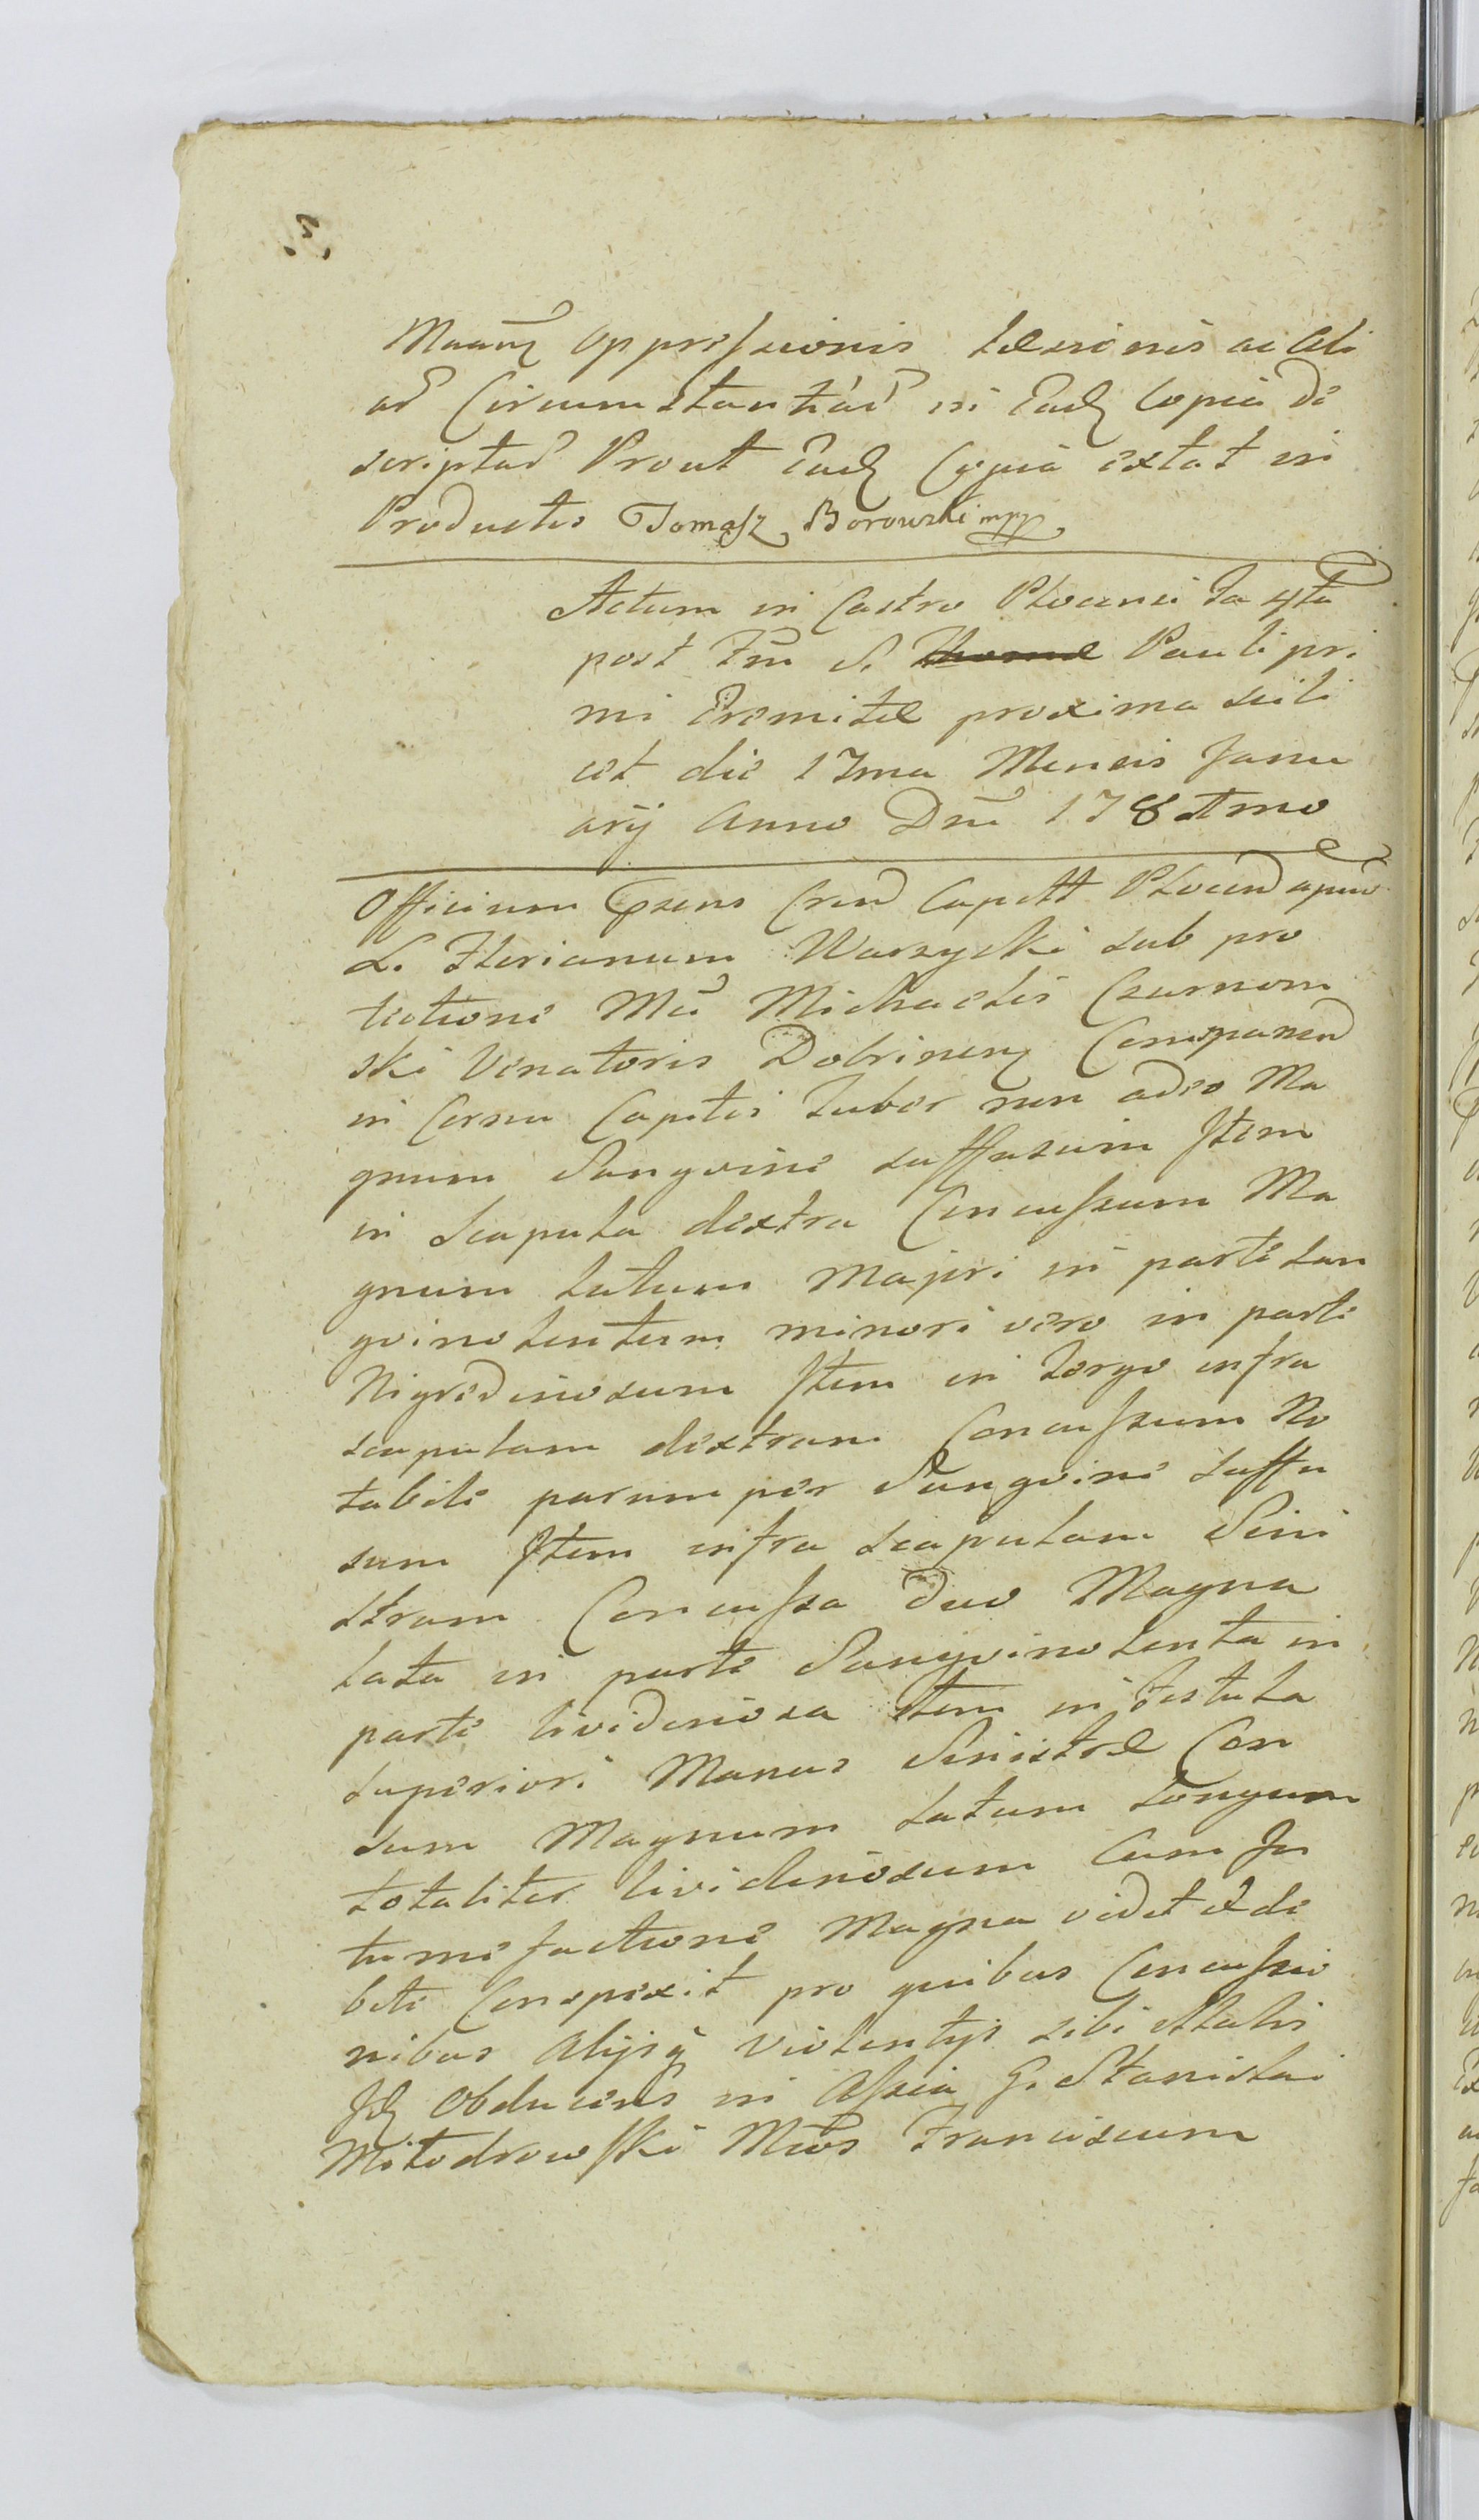 oppressionis læsionis ac ali
as Circumstantias in Ead Copia de
scriptas Prout Ead Copia extat in
Productis Tomasz Borowski mpp
Actum in Castro Plocensi fa 4ta
post Fm S. Thomæ Pauli pri
mi Eremitæ proxima scili
cet die 17ma Mensis Janu
arij Anno Dni 178
Officium Præsens Cren Capitt Plocen apud
L. Florianum Warzycki sub pro
tectione Mci Michaelis Czarnom
ski Venatoris Dobrinen Comparen
in Cornu Capitis Tuber non adeo Ma
gnum Sangvine suffusum Item
in Scapula dextra Concussum Ma
gnum latum majori in parte san
gvinolentum minori vero in parte
Nigredinosum Item in Tergo infra
scapulam dextram Concussum No
tabile parumper Sangvine suffu
sum Item infra scapulam Sini
stram Concussa duo Magna
lata in parte Sangvinolenta in
parte lividinosa Item in fistula
superiori Manus Sinistræ Con
sum Magnum latum longum
totaliter lividinosum Cum In
tumefactione Magna vidit et de
bite Conspexit pro quibus Concussio
nibus Alijsq violentijs sibi illatis
Id Obducens in Assia G. Stanislai
Mitodrowski Mcos Franciscum